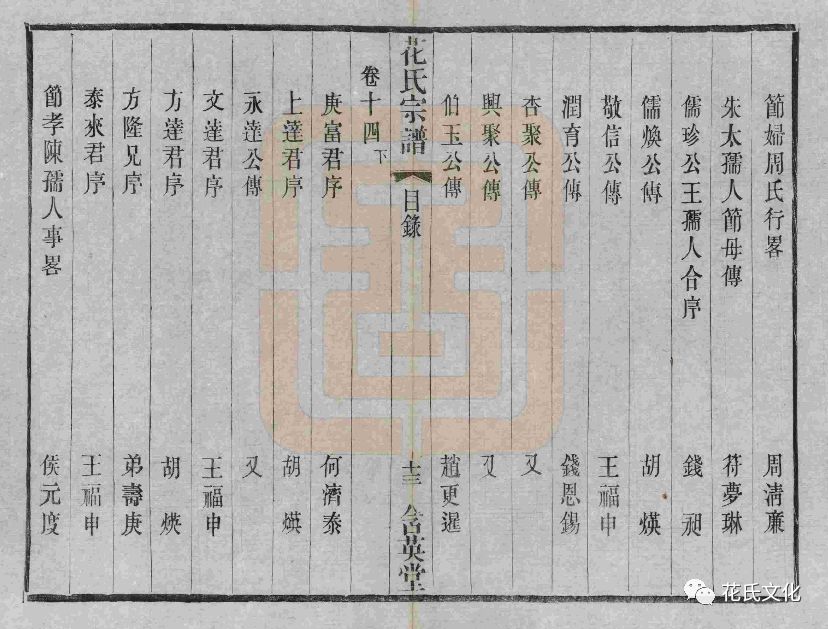 節婦周氏行畧 周清廉
朱太孺人節母傳 符夢琳
儒珍公王孺人合序 錢昶
儒煥公傳 胡煐
敬信公傳 王福申
潤育公傳 錢恩錫
杏聚公傳 又
興聚公傳 又
伯玉公傳 趙更暹
花氏宗譜 目錄 十三 含英堂
卷十四下
庚富君序 何濟泰
上達君序 胡煐
永達公傳 又
文達君序 王福申
方達君序 胡煐
方隆兄序 弟壽庚
泰來君序 王福申
節孝陳孺人事畧 侯元度
花氏文化